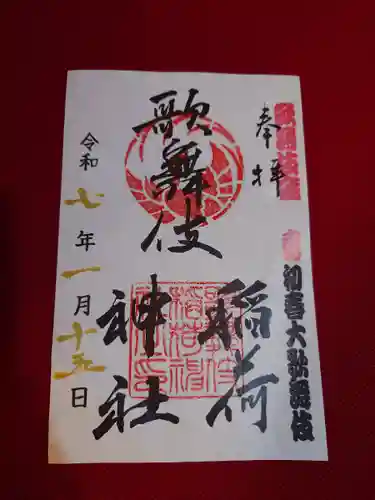 奉拝
歌舞伎座
壽 初春大歌舞伎
歌舞伎
稲荷
神社
令和七年一月十五日